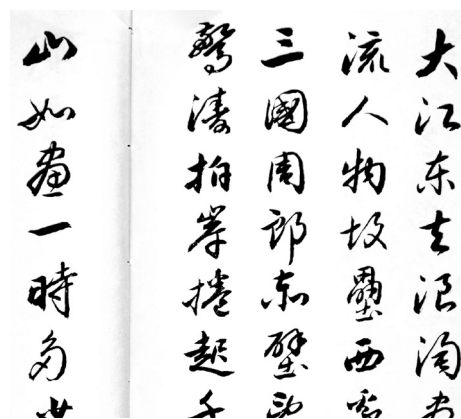 大江东去浪淘尽
流人物故壘西
三國周郎赤壁
驚濤拍岸捲起千
山如畫一時多